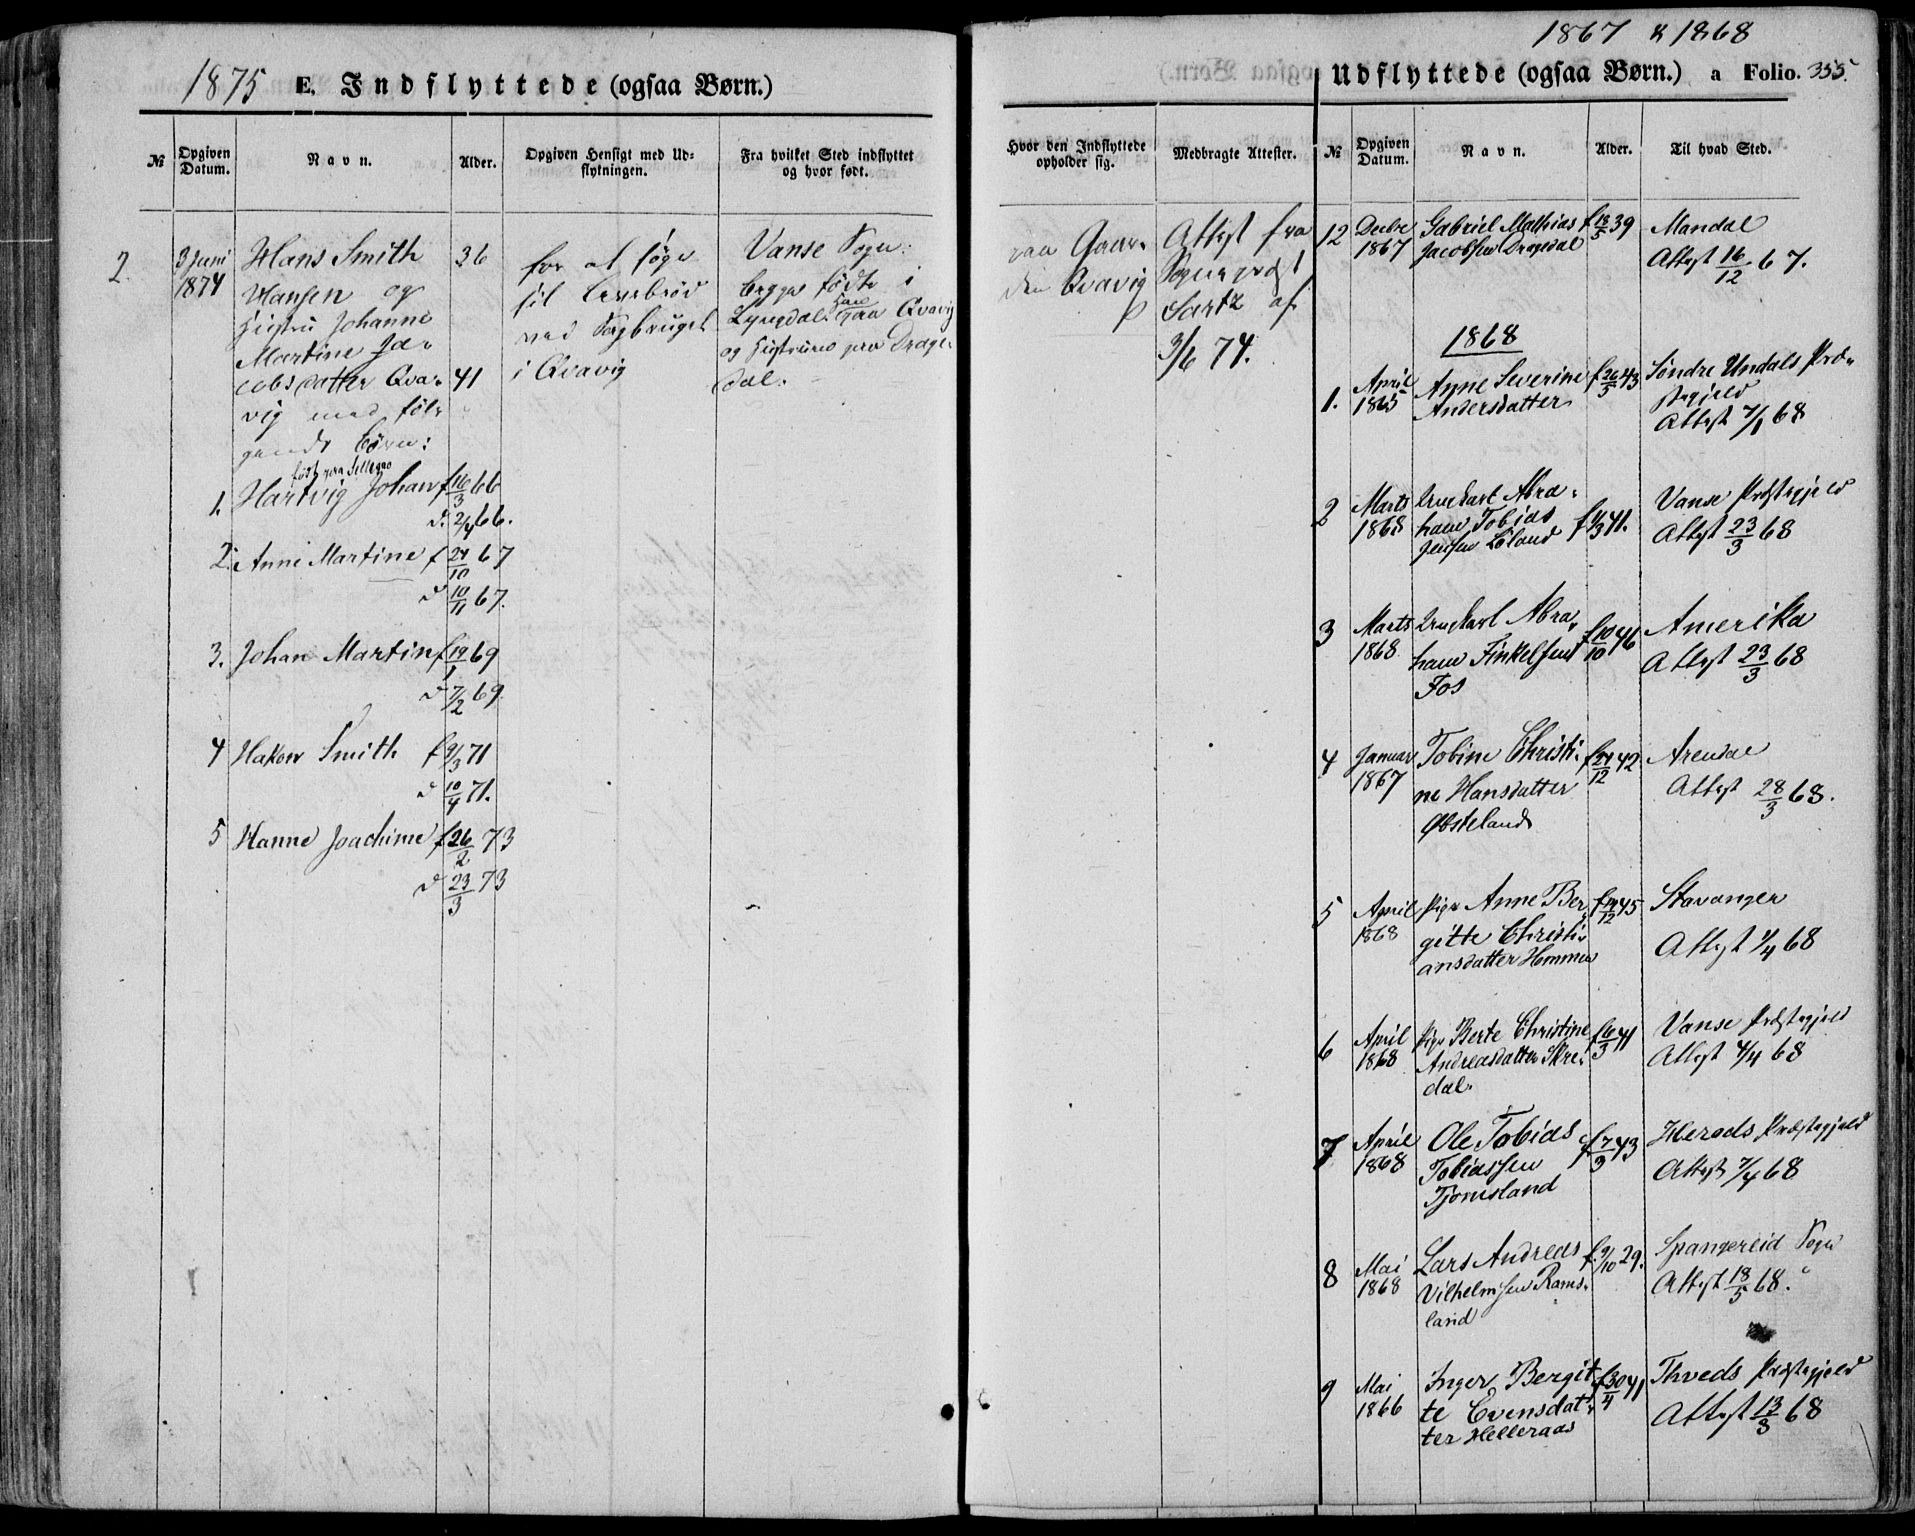 1875 E. Indflyttede (ogsaa Børn.)
№
Opgiven Datum.
Navn.
Alder.
Opgiven Hensigt med Ud-
flytningen.
Fra hvilket Sted indflyttet
og hvor født.
2
3 Juni
1874
Hans Smith
Hansen og
Hustru Johanne
Martine Ja-
cobsdatter Qva-
vig med føl-
gende Børn:
36
41
for at søge
sit Levebrød
ved Sagbruget
i Qvavig
Vanse Sogn:
begge fødte i
Lyngdal. Han paa Qvavig
og Hustruen paa Drage-
dal.
født paa
1. Hartvig Johan f 16/3 66
d. 2/4 66.
2. Anne Martine f 24/10 67
d 10/11 67.
3. Johan Martin f 19/1 69
d 7/2 69.
4 Hakon Smith f 9/3 71
d 10/4 71.
5 Hanne Joachime f 26/2 73
d 23/3 73
1867 & 1868
Udflyttede (ogsaa Børn.) a Folio. 355.
Hvor den Indflyttede
opholder sig.
Medbragte Attester.
№
Opgiven Datum.
Navn.
Alder.
Til hvad Sted.
paa Gaar-
den Qvavig
Attest fra
Sogneprest
Sartz af
3/6 74.
12 Decbr 1867 Gabriel Mathias
Jacobsen Dragedal
f 18/5 39
Mandal
Attest 16/12 67.
1868
1. April 1865 Anne Severine
Andersdatter
f 26/5 43
Søndre Undals Præ-
stegjeld
Attest 7/1 68
2 Marts 1868 Ungkarl Abra-
ham Tobias
Jensen Eiland
f 1/3 41.
Vanse Præstegjeld
Attest 23/3 68
3 Marts 1868 Ungkarl Abra-
ham Finkelsen
Fos
f 10/10 46
Amerika
Attest 23/3 68
4 Januar 1867 Tobine Christi-
ne Hansdatter
Øbsteland
f 24/12 42
Arendal
Attest 28/3 68.
5 April 1868 Pige Anne Ber-
gitte Christi-
ansdatter Hommen
45
Stavanger
Attest 1/4 68
6 April 1868 Pige Berte Christine
Andreasdatter Skre-
dal
f 6/3 41
Vanse Præstegjeld
Attest 4/4 68
7 April 1868 Ole Tobias
Tobiassen
Tjomsland
f 7/3 43
Herads Præstegjeld
Attest 7/4 68
8 Mai 1868 Lars Andreas
Vilhelmsen Rams-
land
f. 9/10 29.
Spangereid Sogn
Attest 18/5 68.
9 Mai 1866 Inger Bergit-
te Evensdat-
ter Helleraas
f 30/4 41
Thveds Præstegjeld
Attest 13/3 68